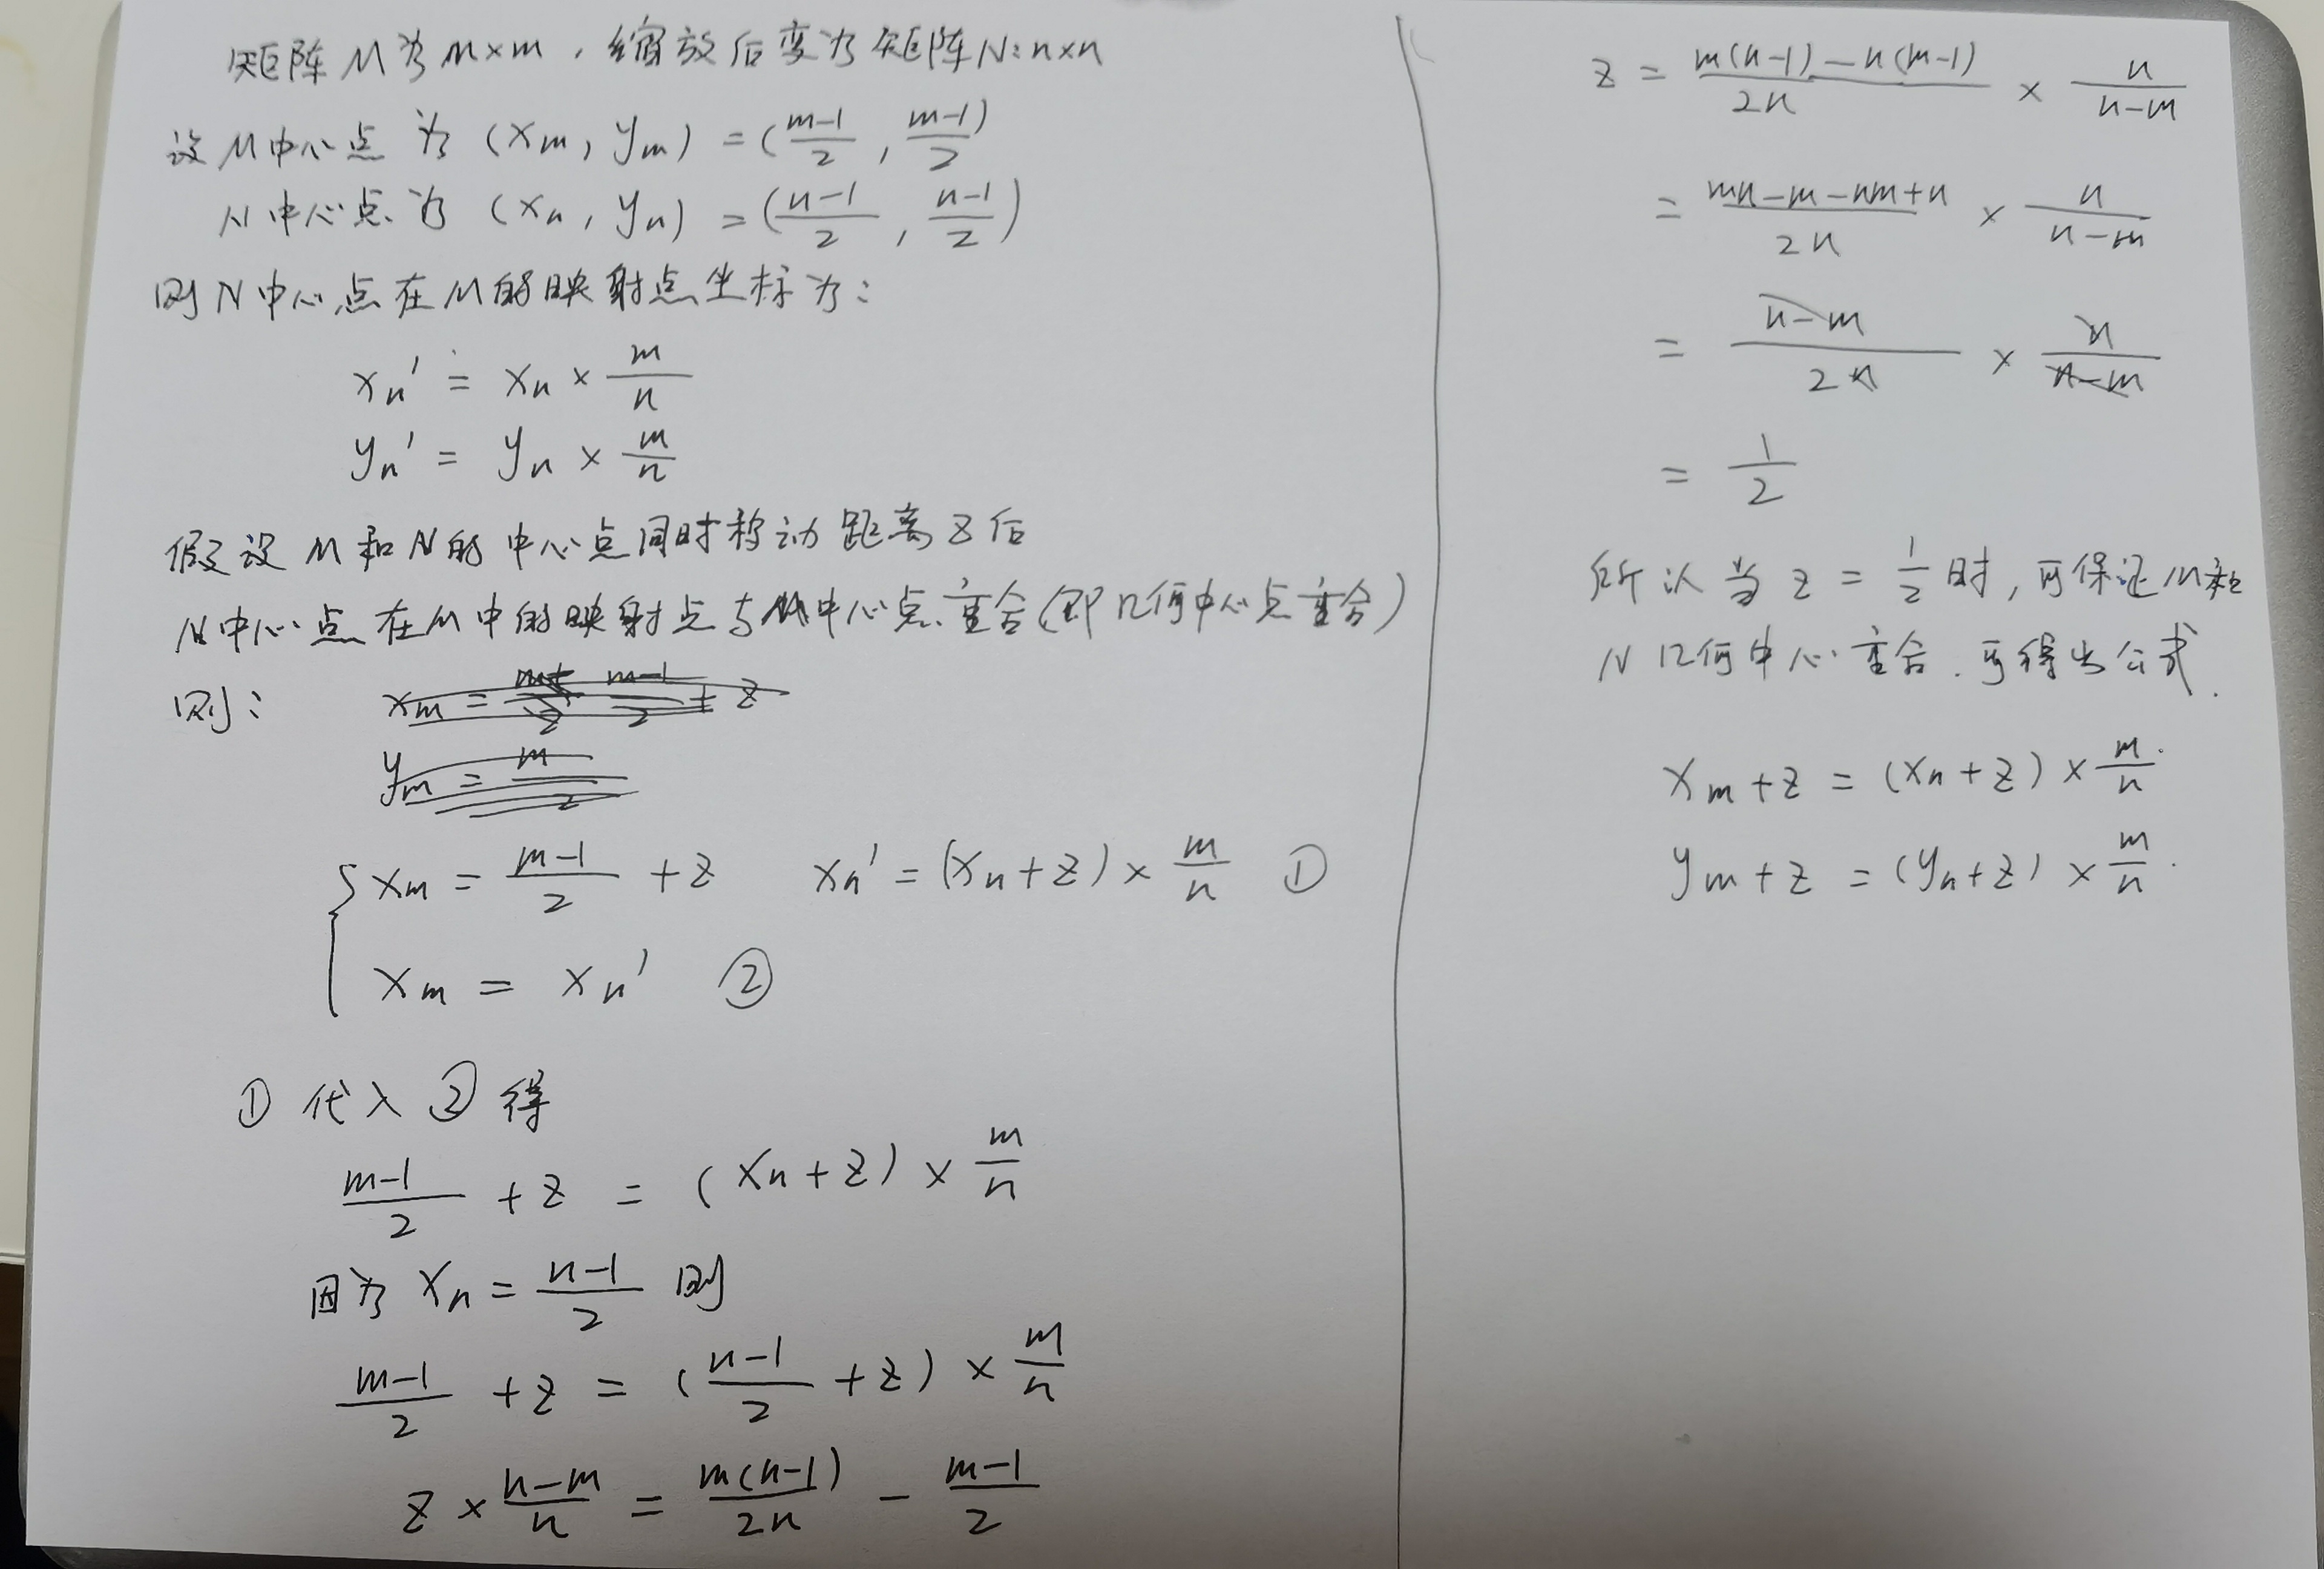 矩阵M为m×m，缩放后变为矩阵N：n×n
设M中心点为(xm, ym) = (m-1/2, m-1/2)
N中心点为(xn, yn) = (n-1/2, n-1/2)
则N中心点在M的映射点坐标为：
xn' = xn × m/n
yn' = yn × m/n
假设M和N的中心点同时移动距离z后
N中心点在M中的映射点与M中心点重合(即几何中心点重合)
则：
{ xm = m-1/2 + z  xn' = (xn+z) × m/n ①
xm = xn' ②
①代入②得
m-1/2 + z = (xn+z) × m/n
因为xn = n-1/2 则
m-1/2 + z = (n-1/2 + z) × m/n
z × n-m/n = m(n-1)/2n - m-1/2
z = m(n-1)-n(m-1)/2n × n/n-m
= mn-m-nm+n/2n × n/n-m
= n-m/2n × n/n-m
= 1/2
所以当z = 1/2时，可保证M和
N几何中心重合.可得出公式.
xm+z = (xn+z) × m/n.
ym+z = (yn+z) × m/n.